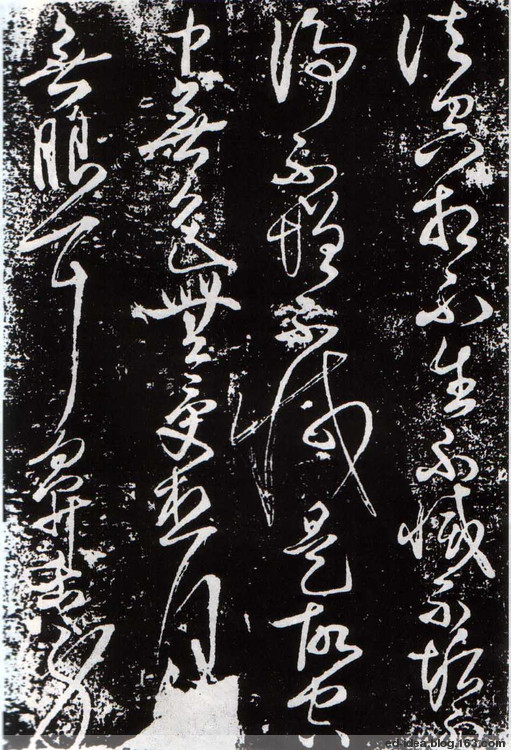 法空相不生不滅不垢不
淨不增不減是故空
中無色無受想行
無眼耳鼻舌身
ed-idea.blog.163.com